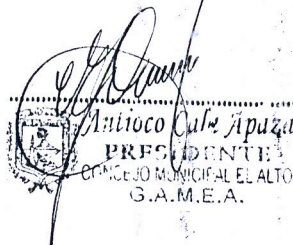 Antioco Calv Apaza
PRESIDENTE
CONCEJO MUNICIPAL EL ALTO
G.A.M.E.A.